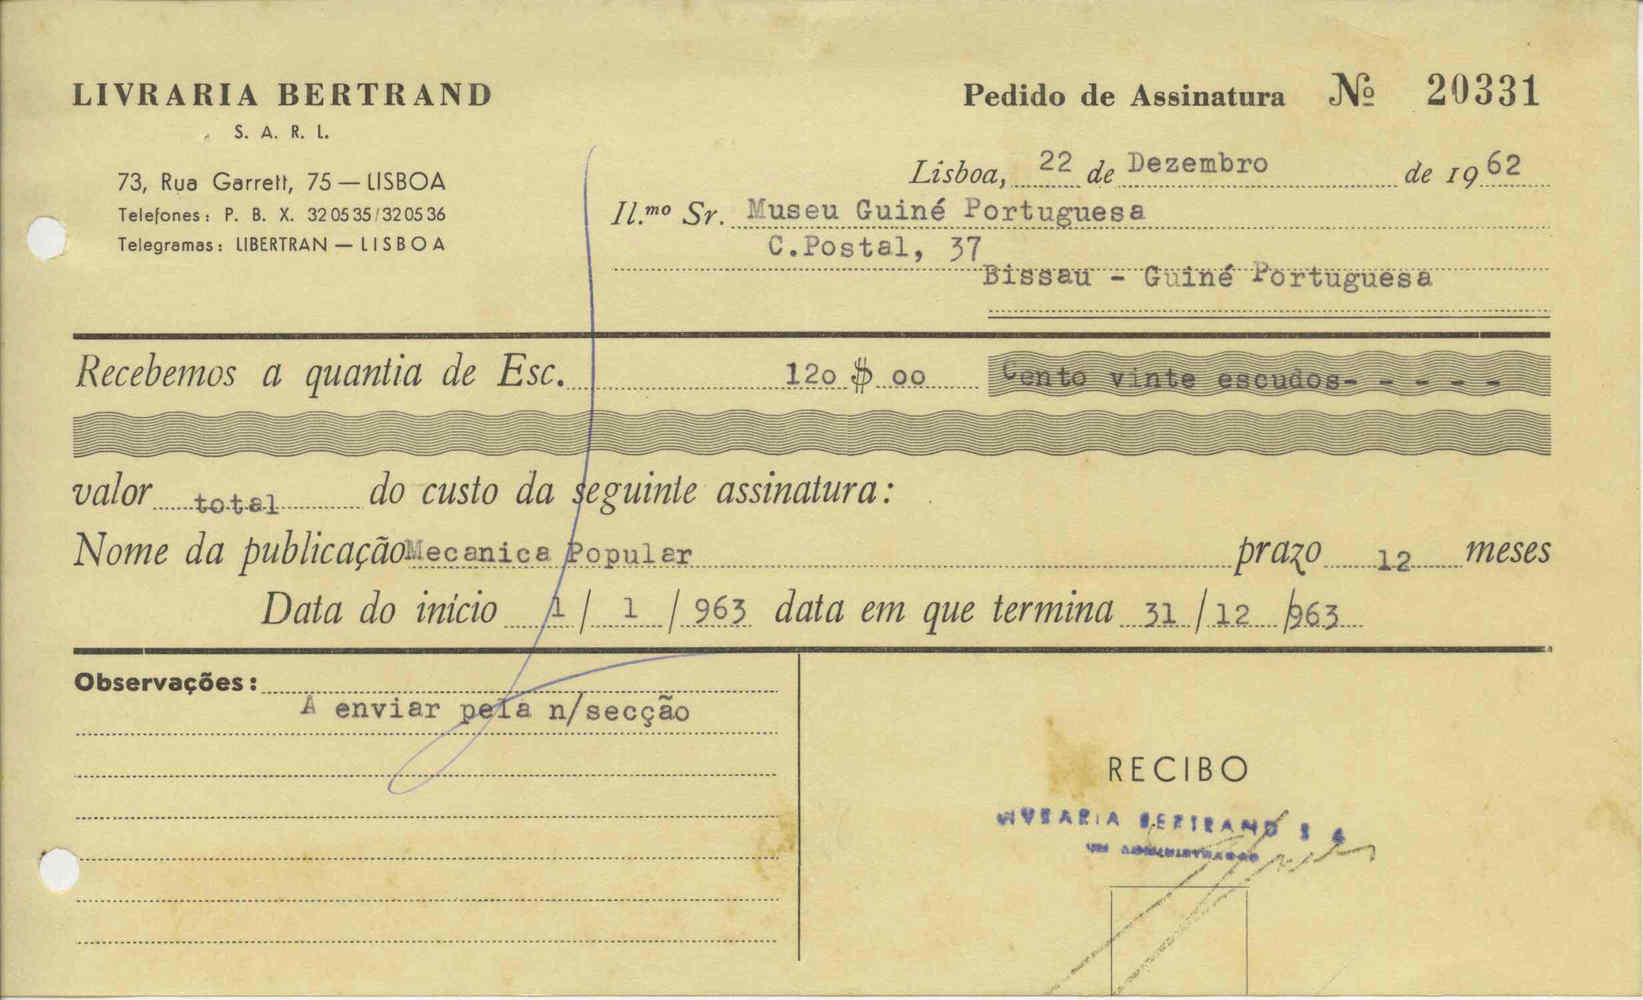 LIVRARIA BERTRAND
S. A. R. L.
73, Rua Garrett, 75 — LISBOA
Telefones: P. B. X. 320535/320536
Telegramas: LIBERTRAN — LISBOA
Pedido de Assinatura Nº 20331
Lisboa, 22 de Dezembro de 1962
Il.mo Sr. Museu Guiné Portuguesa
C.Postal, 37
Bissau - Guiné Portuguesa
Recebemos a quantia de Esc. 120 $ 00 Cento vinte escudos- - - - -
valor total do custo da seguinte assinatura:
Nome da publicação Mecanica Popular prazo 12 meses
Data do início 1 / 1 / 963 data em que termina 31 / 12 /963
Observações:
A enviar pela n/secção
RECIBO
LIVRARIA BERTRAND S A
UM ADMINISTRADOR